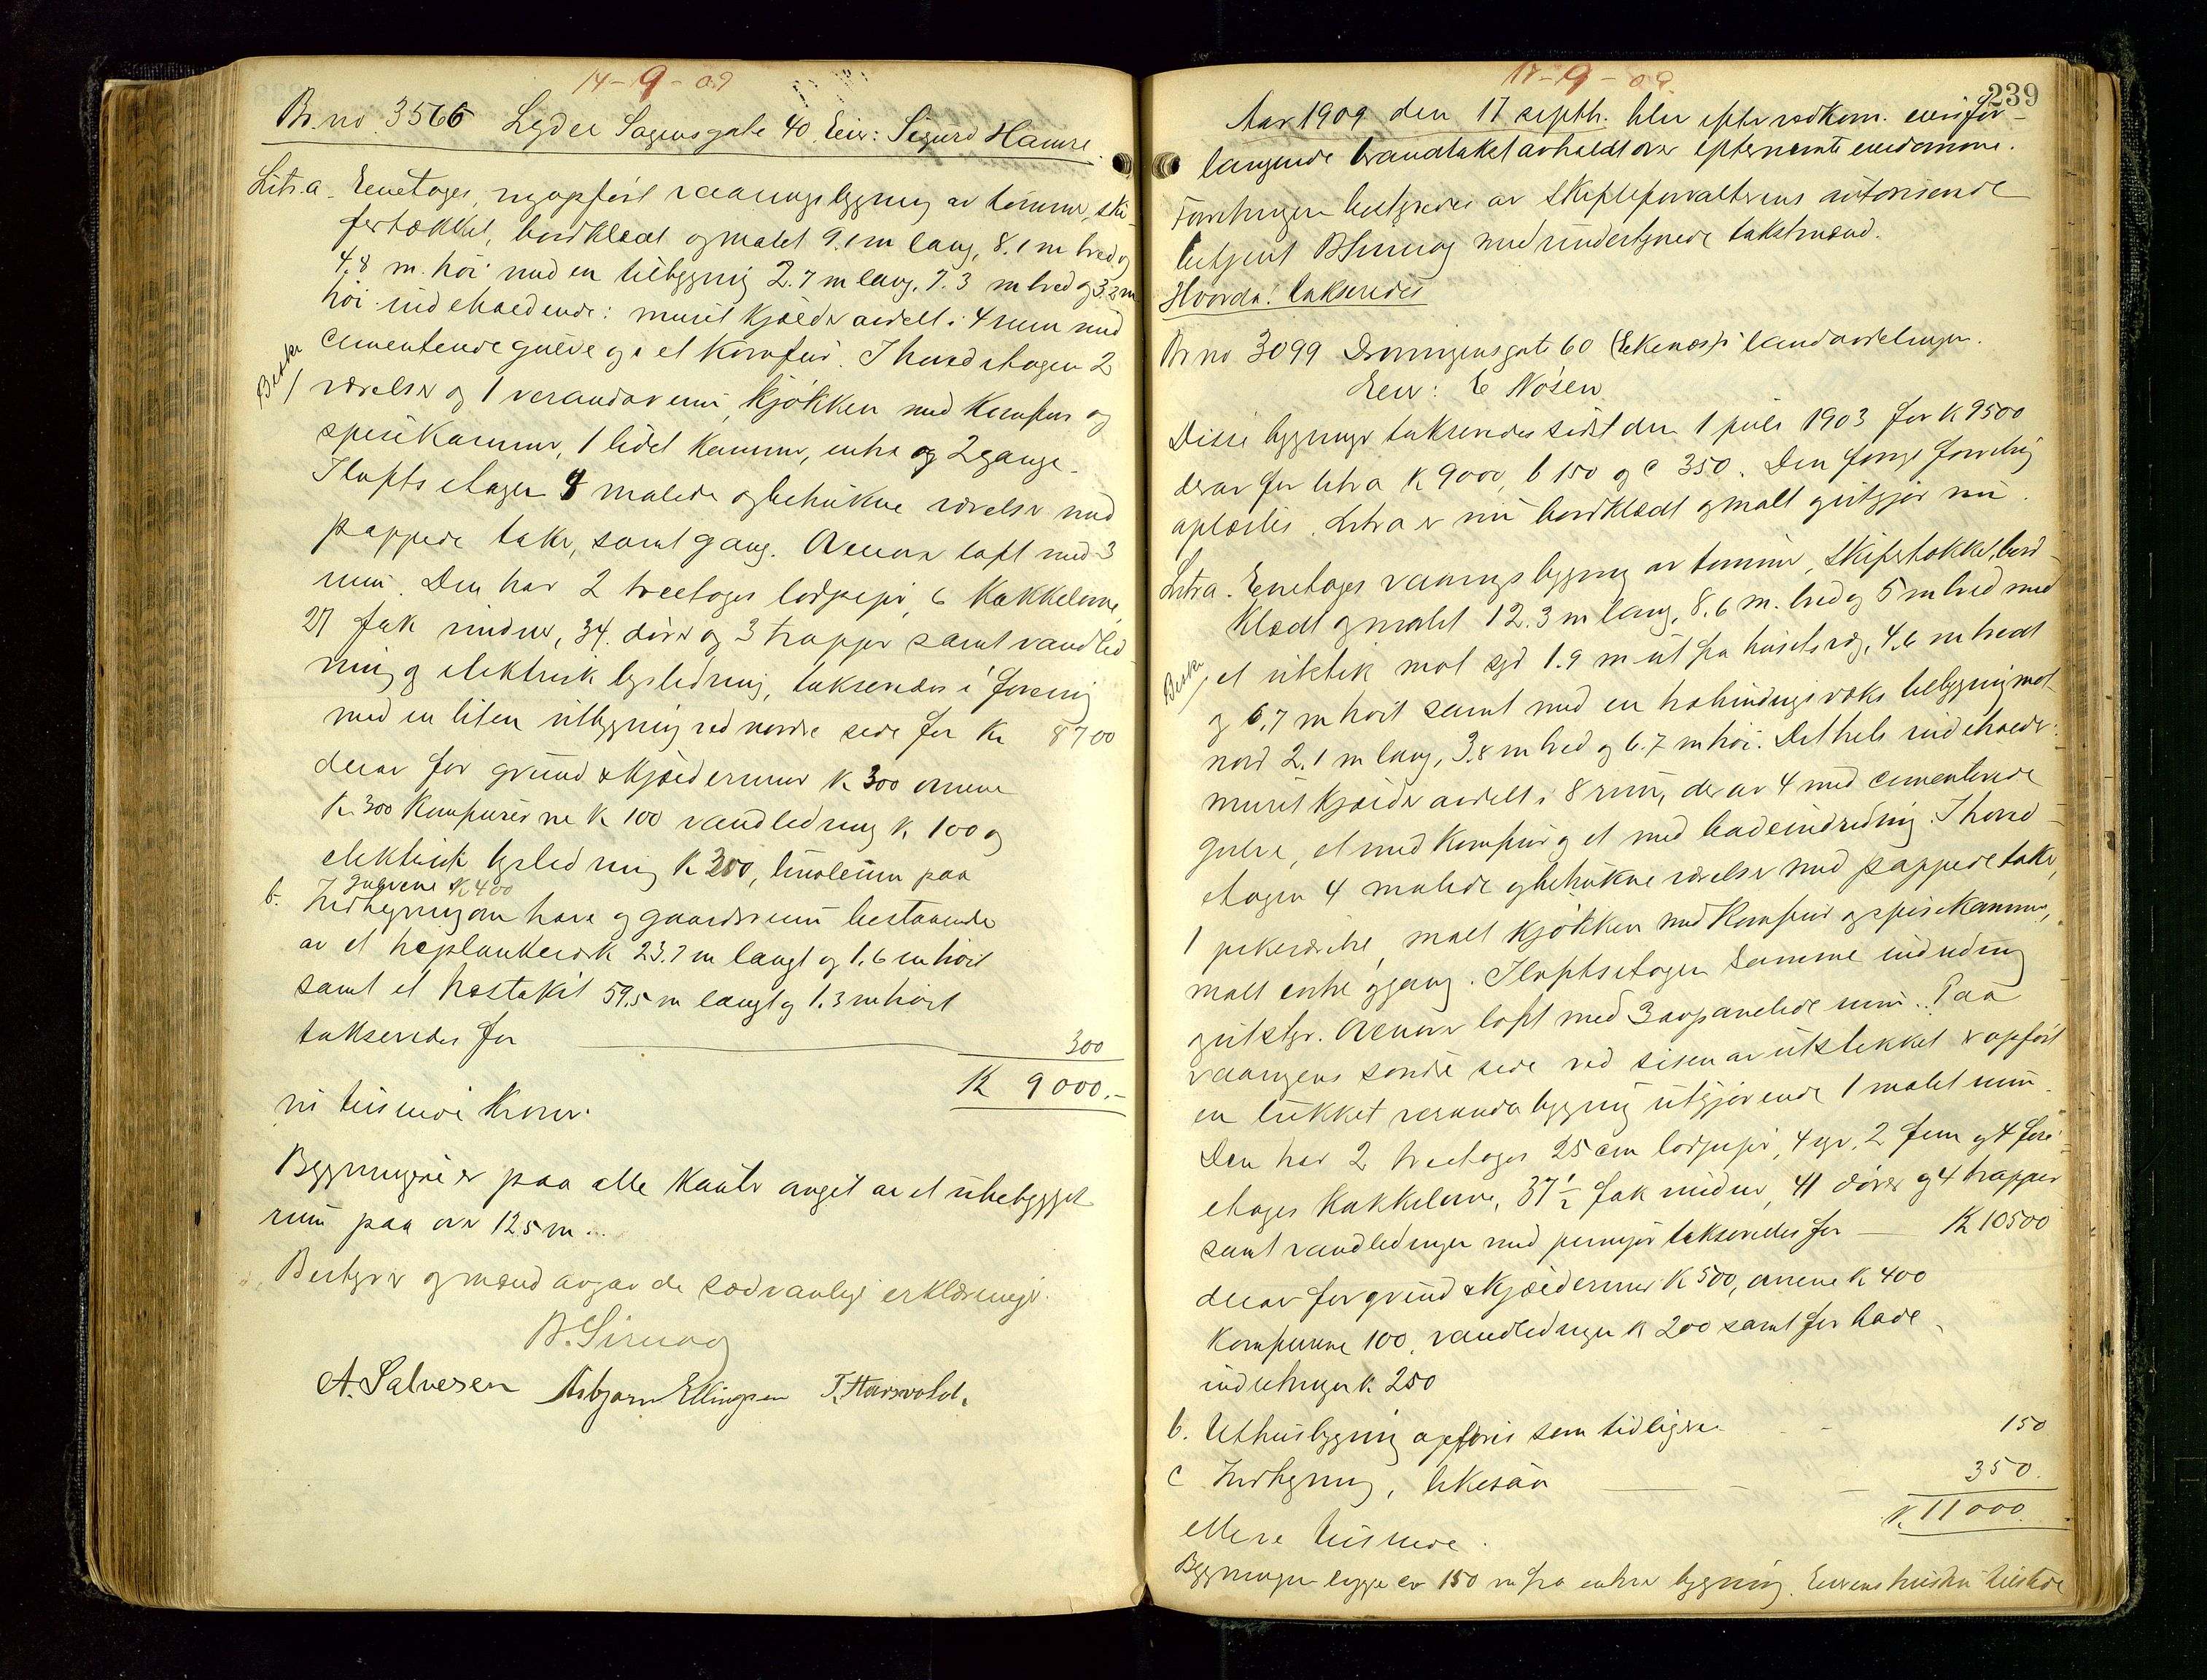 14-9-09
Br.no 3566 Lyder Sagensgate 40. Eier: Sigurd Hamre.
Litr.a. Eenetages, nyopført vaaningsbygning av tømmer, ski-
fertækket, bordklædt og malet 9.1 m lang, 8.1 m bred og
4.8 m. høi med en tilbygning 2.7 m lang, 7.3 m bred og 3.2 m
høi indeholdende: muret kjælder avdelt i 4 rum med
cementerede gulve og i et komfur. I hovedetagen 2
værelser og 1 verandarum, kjøkken med komfur og
spisekammer, 1 lidet kammer, entre og 2 gange.
I loftsetagen 4 malede og betrukne værelser med
pappede take, samt gang. Ovenover loft med 3
rum. Den har 2 treetages lodpiper, 6 kakkelovne,
27 fak vinduer, 34 dører og 3 trapper samt vandled-
ning og elektrisk lysledning, takseredes i forening
med en liten utbygning ved nordre side for Kr 8700
derav for grund & kjældermur K 300 ovnene
K 300 Komfurerne K 100 vandledning K 100 og
elektrisk lysledning K 300, linoleum paa
gulvene K 400
b. Indhegning om have og gaardsrum bestaaende
av et træplankeverk 23.7 m langt og 1.6 m høit
samt et træstakit 59.5 m langt og 1.3 m høit
takseredes for 300
K 9000.-
ni tusinde Kroner.
Bygningene er paa alle kanter omgit av et ubebygget
rum paa over 12.5 m.
Bestyrer og mænd avgav de sædvanlige erklæringer.
B. Sirnæs
A. Salvesen Asbjørn Ellingsen T. Haarvold.
17-9-09
239
Aar 1909 den 17 septbr. blev efter vedkom. eeiers for-
langende brandtakst avholdt over efternævnte eiendomme.
Forretningen bestyredes av Skifteforvalterens autoriserede
betjent B Sirnæs med undertegnede takstmænd.
Hvorda: takseredes
Br no 3099 Dronningensgate 60 (Ekenæs) i landavdelingen.
Eeier: E Nøsen
Disse bygninger takseredes sidst den 1 juli 1903 for K 9500
derav for litr a K 9000, b 150 og c 350. Den forrige forretning
oplæstes. Litr a er nu bordklædt og malt og utgjør nu.
Litr a. Eenetages vaaningsbygning av tømmer, skifertækket, bord-
klædt og malet 12.3 m lang, 8.6 m. bred og 5 m bred med
et utstik mot syd 1.9 m ut fra husets væg, 4.6 m bredt
og 6.7 m høit samt med en trabindingsverks tilbygning mot
nord 2.1 m lang, 3.8 m bred og 6.7 m høi. Det hele indeholder:
muret kjælder avdelt i 8 rum, derav 4 med cementerede
gulve, et med komfur og et med badeindredning. I hoved-
etagen 4 malede og betrukne værelser med pappede take,
1 pikeværelse, malt kjøkken med komfur og spisekammer,
malt entre og gang. I loftsetagen samme indredning
og utstyr. Ovenover loft med 3 avpanelede rum. Paa
vaaningens søndre side ved siden av utstikket er opført
en lukket verandabygning utgjørende 1 malet rum.
Den har 2 treetages 25 cm lodpiper, 4 gr. 2 fem og 4 fire-
etages kakkelovne, 37½ fak vinduer, 41 dører og 4 trapper
samt vandledninger med piringer takseredes for K 10500
derav for grund & kjældermur K 500, ovnene K 400
Komfurene 100, vandledninger K 200 samt for bade-
indretninger K 250
b. Uthusbygning opføres som tidligere 150
c Indhegning, likesaa 350.
K. 11000
elleve tusinde.
Bygningene ligger ca 150 m fra anden bygning. Eierens hustru tilstede
Besikt.
Besikt.